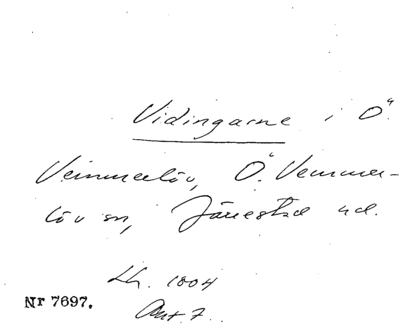 Vidingarne i Ö.
Vemmerlöv, Ö. Vemmer-
löv sn, Järrestad hd.
Lh. 1804
Akt. 7.
Nr 7697.